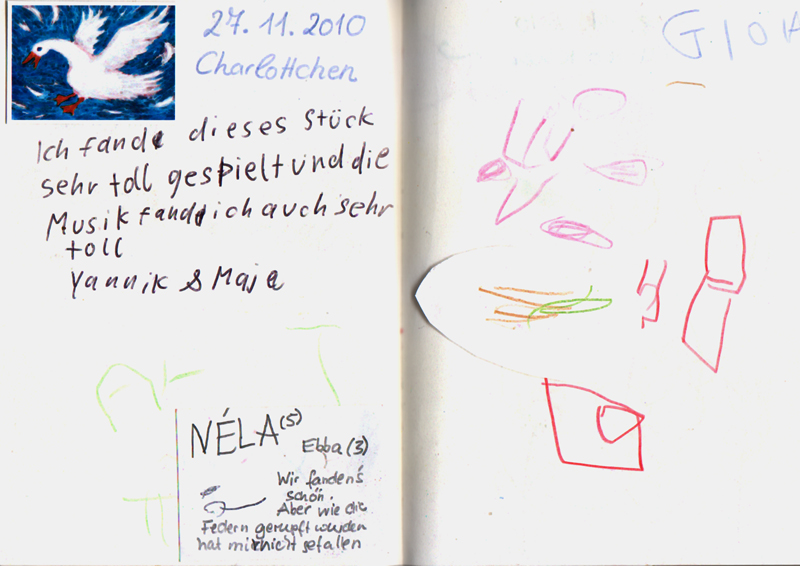 27.11.2010
Charlottchen
Ich fande dieses Stück
sehr toll gespielt und die
Musik fand ich auch sehr
toll
Yannik & Maja
NÉLA (5)
Ebba (3)
Wir fanden's
schön.
Aber wie die
Federn gerupft wurden
hat mir nicht gefallen